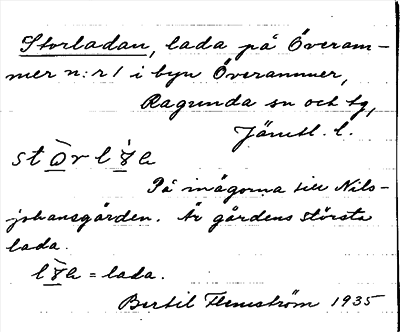 Storladan, lada på Överam-
mer n:r 1 i byn Överammer,
Ragunda sn och tg,
Jämtl. l.
På inägorna till Nils-
johansgården. Är gårdens största
lada.
= lada.
Bertil Flemström 1935